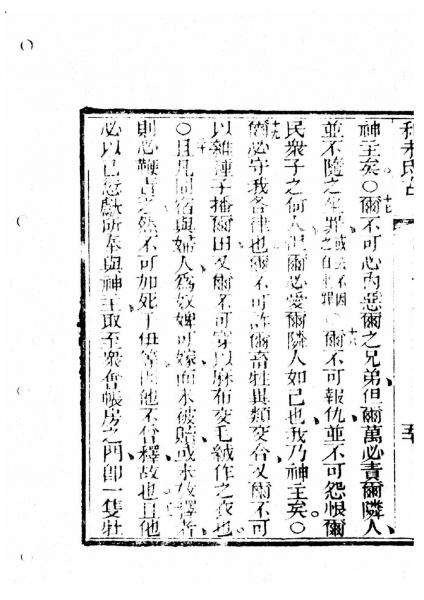 神主矣○十七爾不可心內惡爾之兄弟但爾萬必責爾隣人
並不隨之坐罪或云不因之自坐罪○十八爾不可報仇並不可怨恨爾
民衆子之何人但爾必愛爾隣人如己也我乃神主矣○
十九爾必守我各律也爾不可許爾畜牲與類交合又爾不可
以雜種子播爾田又爾不可穿以麻布交毛絨作之衣也
○二十且凡同宿與婦人為奴婢可嫁而未被贖或未放釋者
則必鞭責之然不可加死于伊等因他不曾釋故也且他
必以己愆獻所奉與神主取至衆會帳房之門即一隻牡